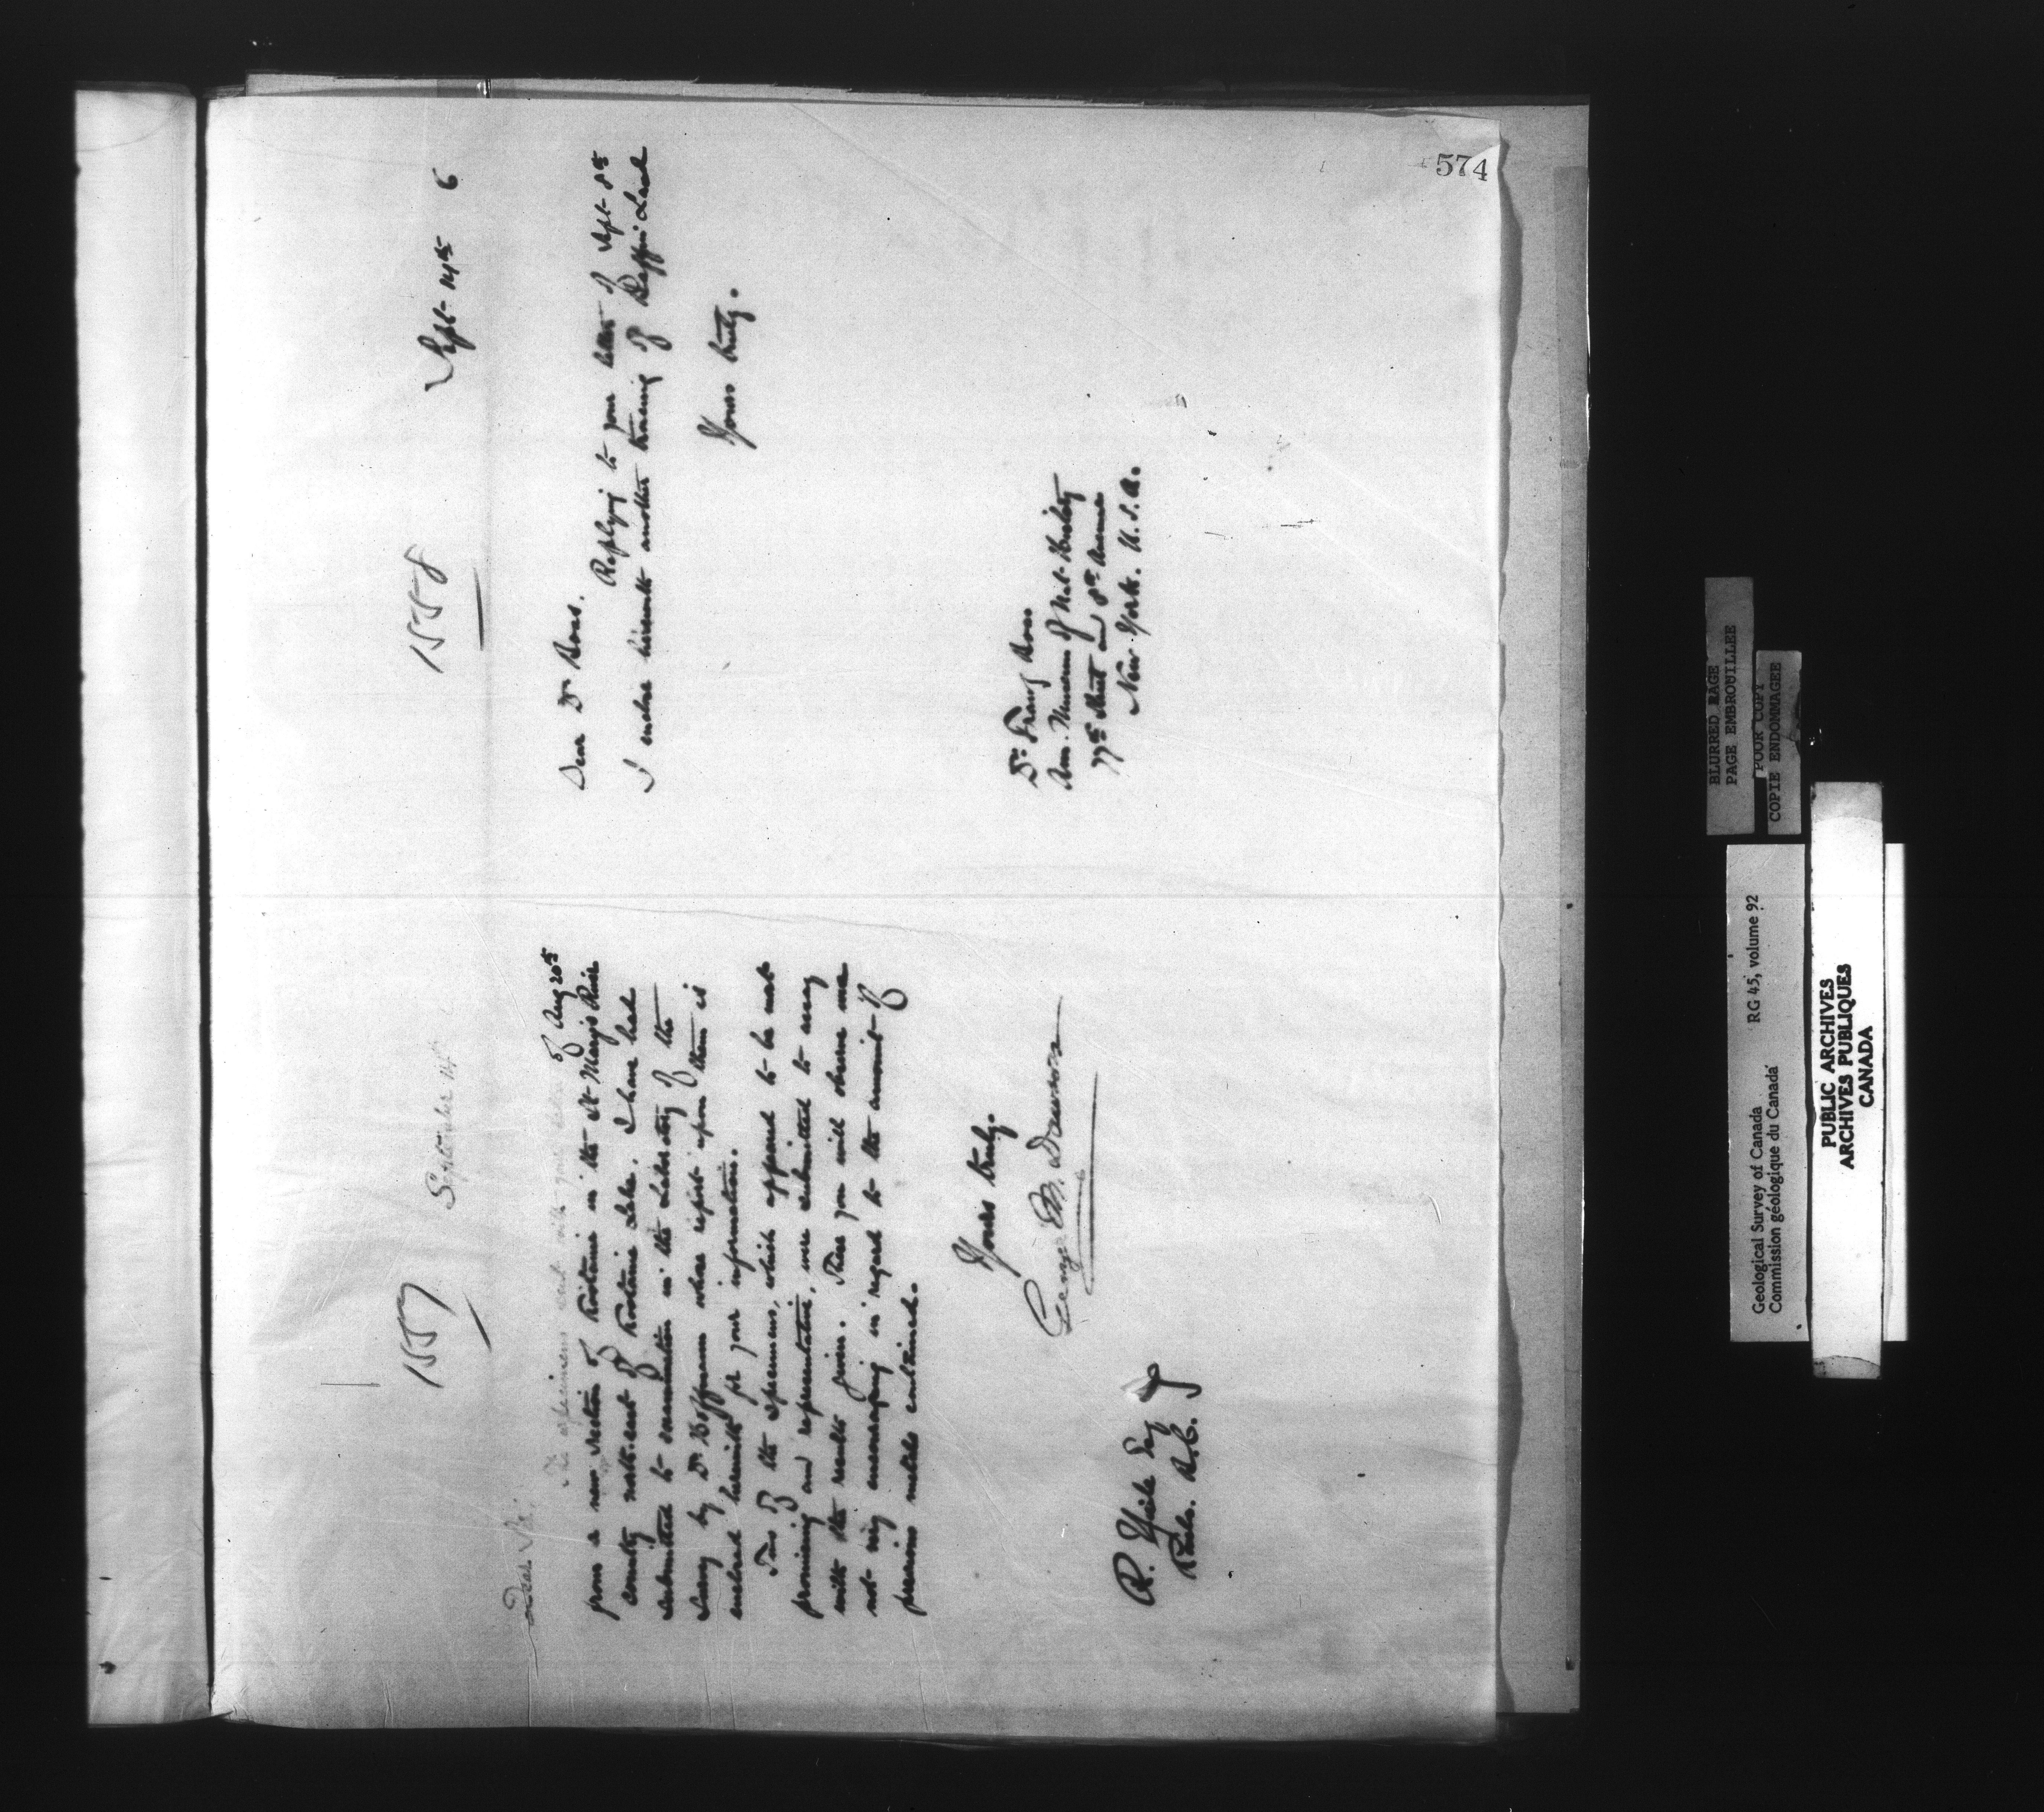 574
1557
September 14th
Dear Sir,
The specimens sent with your letter of Aug 20th
from a new section of Kootanie in the St Mary's River
country north-east of Kootanie Lake. I have had
submitted to examination in the Laboratory of the
Survey by Dr Hoffmann whose report upon them is
enclosed herewith for your information.
Two of the specimens, which appeared to be most
promising and representative, were submitted to assay
with the results given. These you will observe are
not very encouraging in regard to the amount of
precious metals contained.
Yours truly.
George M. Dawson
R. Esq
B.C.
1558
Sept 14th 6
Dear Dr Boas.
Replying to your letter of Sept 8th
I enclose herewith another tracing of Baffin Land
Yours truly.
Dr. Franz Boas
Am. Museum of Nat. History
77th Street and 8th Avenue
New York. U.S.A.
BLURRED PAGE
PAGE EMBROUILLEE
POOR COPY
COPIE ENDOMMAGEE
Geological Survey of Canada RG 45, volume 92
Commission géologique du Canada
PUBLIC ARCHIVES
ARCHIVES PUBLIQUES
CANADA